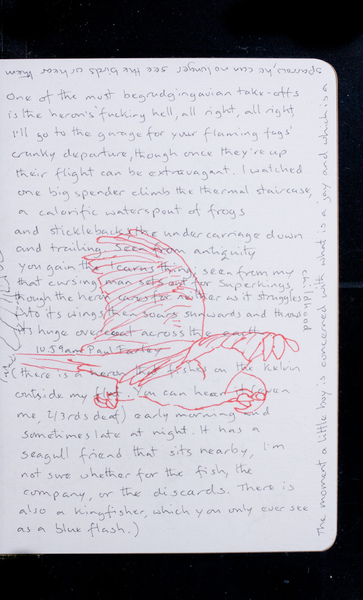 One of the most begrudging avian take-offs
is the heron's 'fucking hell, all right, all right
I'll go to the garage for your flaming fags'
cranky departure, though once they're up
their flight can be extravagant. I watched
one big spender climb the thermal staircase,
a calorific waterspout of frogs
and sticklebacks, the undercarriage down
and trailing. Seen from antiquity
you gain the Icarus thing; seen from my
that cursing man sets out for Superkings,
though the heron cares for neither as it struggles
into its wings then soars sunwards and throws
its huge overcoat across the earth
10.59am Paul Farley
(there is a heron that fishes on the Kelvin
outside my flat. You can hear it, even
me, 2/3rds deaf) early mornings and
sometimes late at night. It has a
seagull friend that sits nearby, I'm
not sure whether for the fish, the
company, or the discards. There is
also a kingfisher, which you only ever see
as a blue flash.)
childhood
The moment a little boy is concerned with what is a jay and which is a
sparrow, he can no longer see the birds or hear them